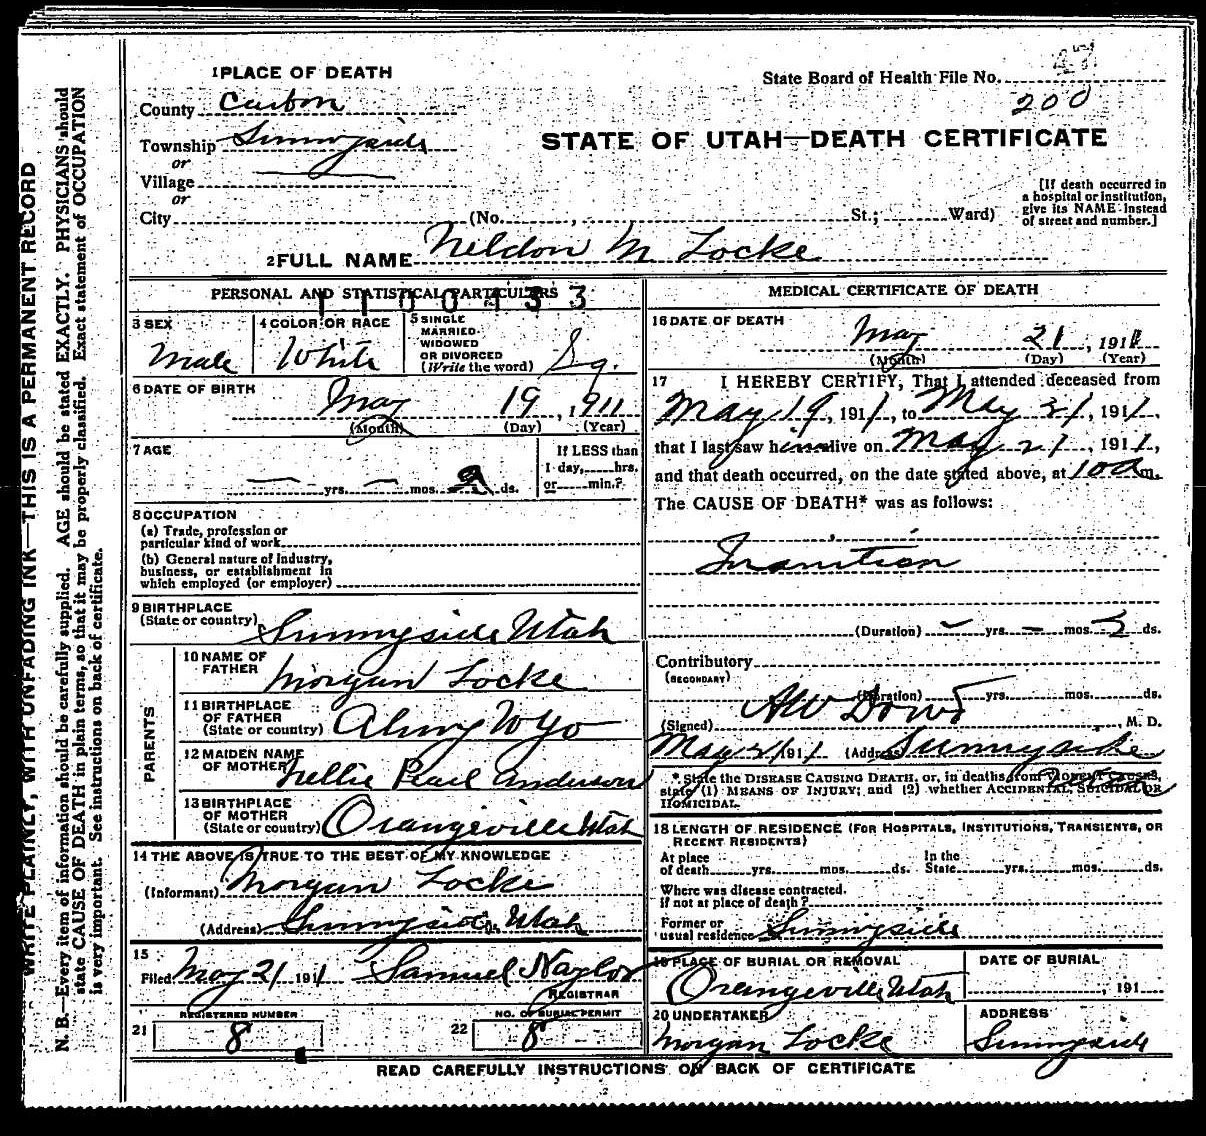 1 PLACE OF DEATH
County Carbon
Township Sunnyside
or
Village
or
City (No. , St.; Ward)
State Board of Health File No. 47
200
STATE OF UTAH—DEATH CERTIFICATE
[If death occurred in
a hospital or institution,
give its NAME instead
of street and number.]
2 FULL NAME Neldon M Locke
PERSONAL AND STATISTICAL PARTICULARS
1100433
3 SEX
Male
4 COLOR OR RACE
White
5 SINGLE
MARRIED
WIDOWED
OR DIVORCED
(Write the word) Sg.
6 DATE OF BIRTH
May 19, 1911
(Month) (Day) (Year)
7 AGE
— yrs. — mos. 2 ds.
If LESS than
1 day, hrs.
or min.?
8 OCCUPATION
(a) Trade, profession or
particular kind of work
(b) General nature of industry,
business, or establishment in
which employed (or employer)
9 BIRTHPLACE
(State or country) Sunnyside Utah
PARENTS
10 NAME OF
FATHER Morgan Locke
11 BIRTHPLACE
OF FATHER
(State or country) Almy Wyo
12 MAIDEN NAME
OF MOTHER Nellie Pearl Anderson
13 BIRTHPLACE
OF MOTHER
(State or country) Orangeville Utah
14 THE ABOVE IS TRUE TO THE BEST OF MY KNOWLEDGE
(Informant) Morgan Locke
(Address) Sunnyside, Utah
15
Filed May 21 1911 Samuel Naylor
REGISTRAR
21 REGISTERED NUMBER
8
22 NO. OF BURIAL PERMIT
8
MEDICAL CERTIFICATE OF DEATH
16 DATE OF DEATH
May 21, 1911
(Month) (Day) (Year)
17 I HEREBY CERTIFY, That I attended deceased from
May 19, 1911, to May 21, 1911,
that I last saw him alive on May 21, 1911,
and that death occurred, on the date stated above, at 10 a m.
The CAUSE OF DEATH* was as follows:
Inanition
(Duration) — yrs. — mos. 2 ds.
Contributory
(SECONDARY)
(Duration) yrs. mos. ds.
(Signed) A W Dowd, M. D.
May 21 1911 (Address) Sunnyside
Utah
* State the DISEASE CAUSING DEATH, or, in deaths from VIOLENT CAUSES,
state (1) MEANS OF INJURY; and (2) whether ACCIDENTAL, SUICIDAL OR
HOMICIDAL.
18 LENGTH OF RESIDENCE (FOR HOSPITALS, INSTITUTIONS, TRANSIENTS, OR
RECENT RESIDENTS)
At place
of death yrs. mos. ds.
In the
State yrs. mos. ds.
Where was disease contracted,
if not at place of death?
Former or
usual residence Sunnyside
19 PLACE OF BURIAL OR REMOVAL
Orangeville Utah
DATE OF BURIAL
, 191
20 UNDERTAKER
Morgan Locke
ADDRESS
Sunnyside
READ CAREFULLY INSTRUCTIONS ON BACK OF CERTIFICATE
WRITE PLAINLY, WITH UNFADING INK—THIS IS A PERMANENT RECORD
N. B.—Every item of information should be carefully supplied. AGE should be stated EXACTLY. PHYSICIANS should
state CAUSE OF DEATH in plain terms, so that it may be properly classified. Exact statement of OCCUPATION
is very important. See instructions on back of certificate.